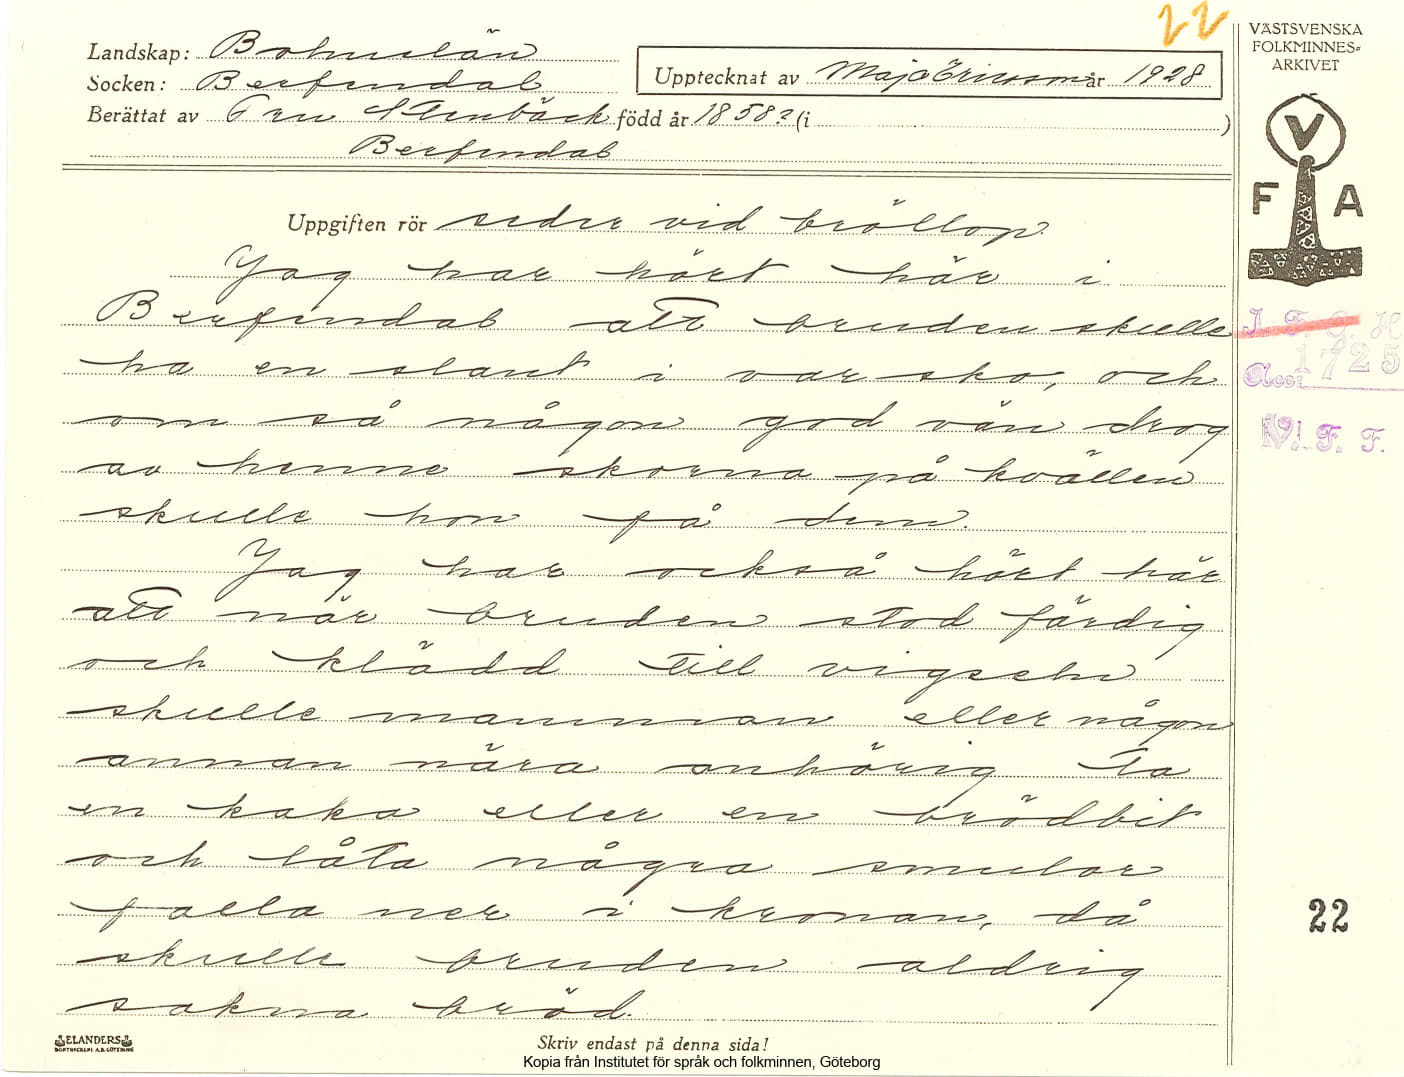 22
VÄSTSVENSKA
FOLKMINNES=
ARKIVET
Landskap: Bohuslän
Socken: Berfendal
Upptecknat av Maja Ericsson år 1928
Berättat av Fru Stenbäck född år 1858? (i )
Berfendal
V
F A
Uppgiften rör seder vid bröllop.
Jag har hört här i
Berfendal att bruden skulle
ha en slant i var sko, och
om så någon god vän drog
av henne skorna på kvällen
skulle hon få dem.
Jag har också hört här
att när bruden stod färdig
och klädd till vigseln
skulle mamman eller någon
annan nära anhörig ta
en kaka eller en brödbit
och låta några smulor
falla ner i kronan, då
skulle bruden aldrig
sakna bröd.
I. F. G. H
Acc: 1725
V. F. F.
22
ELANDERS
BOKTRYCKERI A.B. GÖTEBORG
Skriv endast på denna sida!
Kopia från Institutet för språk och folkminnen, Göteborg